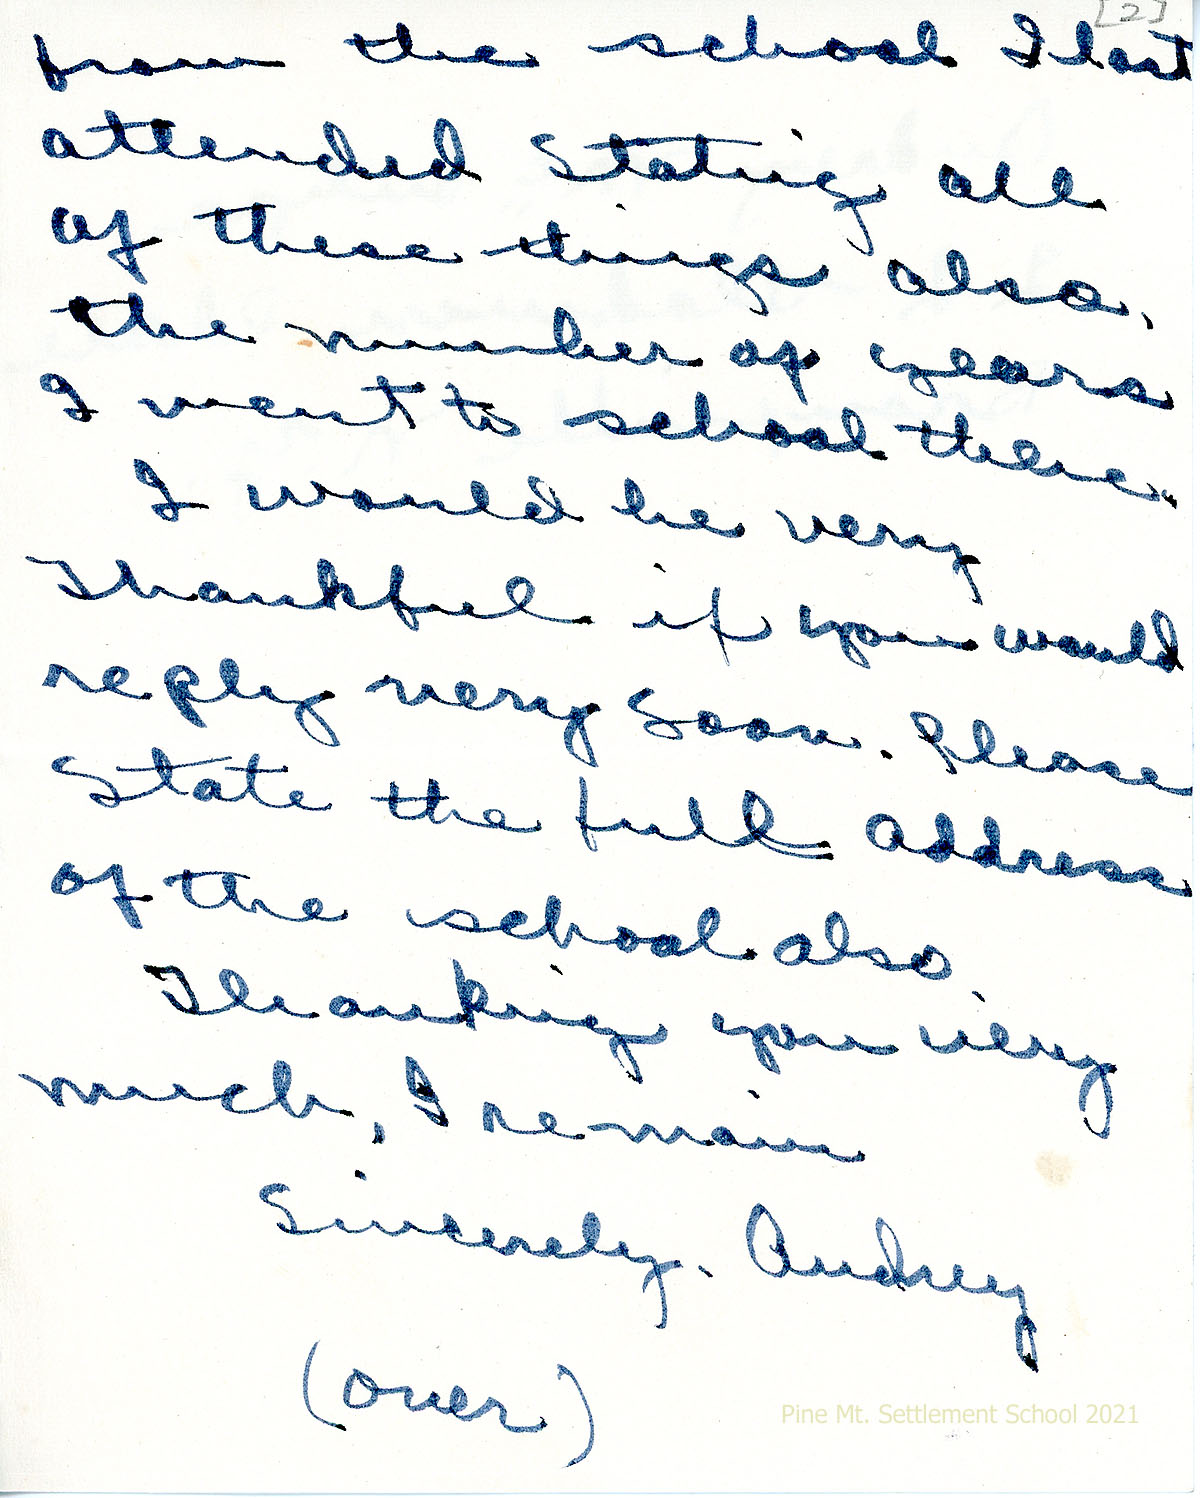 [2]
from the school I last
attended Stating all
of these things also,
the number of years
I went to school there.
I would be very
Thankful if you would
reply very Soon. Please
State the full address
of the school also
Thanking you very
much, I remain
Sincerely, Audrey
(over)
Pine Mt. Settlement School 2021